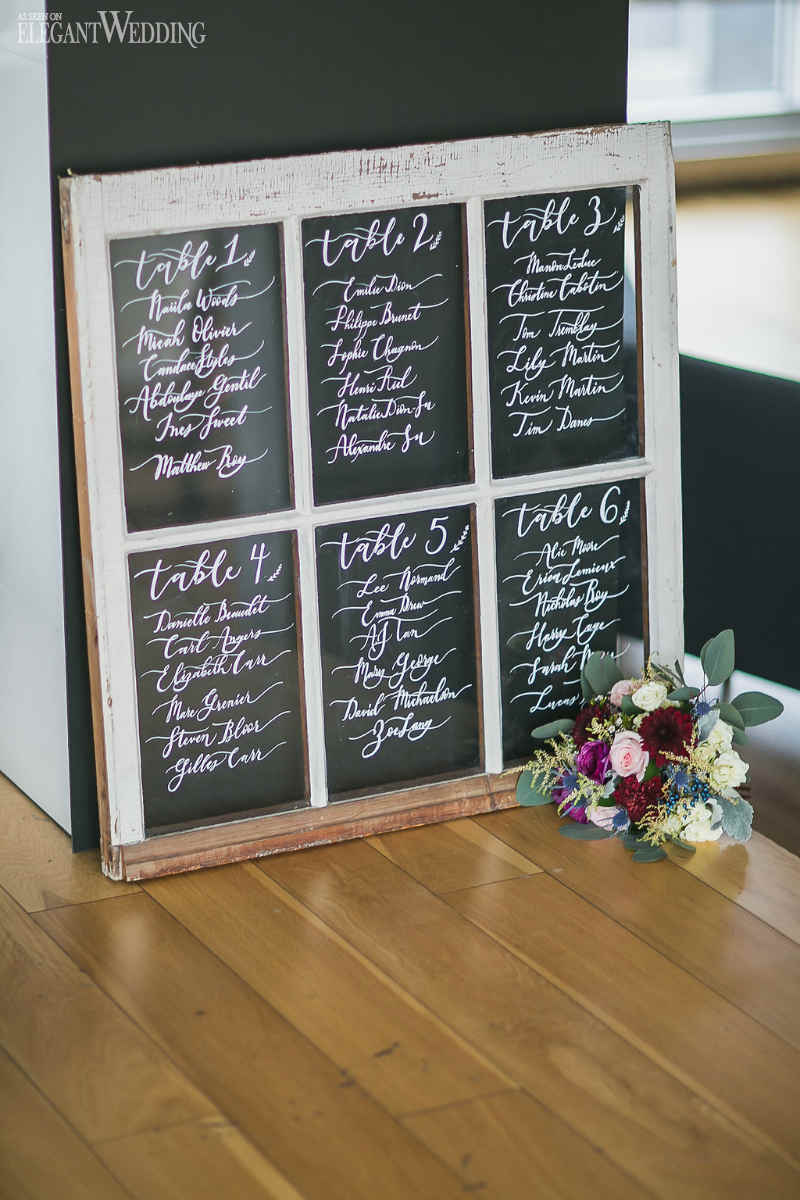 AS SEEN ON
ELEGANTWEDDING
table 1
Naiila Woods
Micah Olivier
Candace Styles
Abdoulaye Gentil
Ines Sweet
Matthew Boy
table 2
Emilie Dion
Philippe Brunet
Sophie Chagnon
Henri Riel
Natalie Dion-Su
Alexandre Su
table 3
Manon Leduc
Christine Cabotin
Tom Tremblay
Lily Martin
Kevin Martin
Tim Danes
table 4
Danielle Beaudet
Carl Angers
Elizabeth Carr
Marc Grenier
Steven Bloor
Gilles Carr
table 5
Lee Normand
Emma Drew
AJ Tan
Mary George
David Michaelson
Zoe Lang
table 6
Alie Moore
Erica Lemieux
Nicholas Boy
Harry Cage
Sarah
Lucas